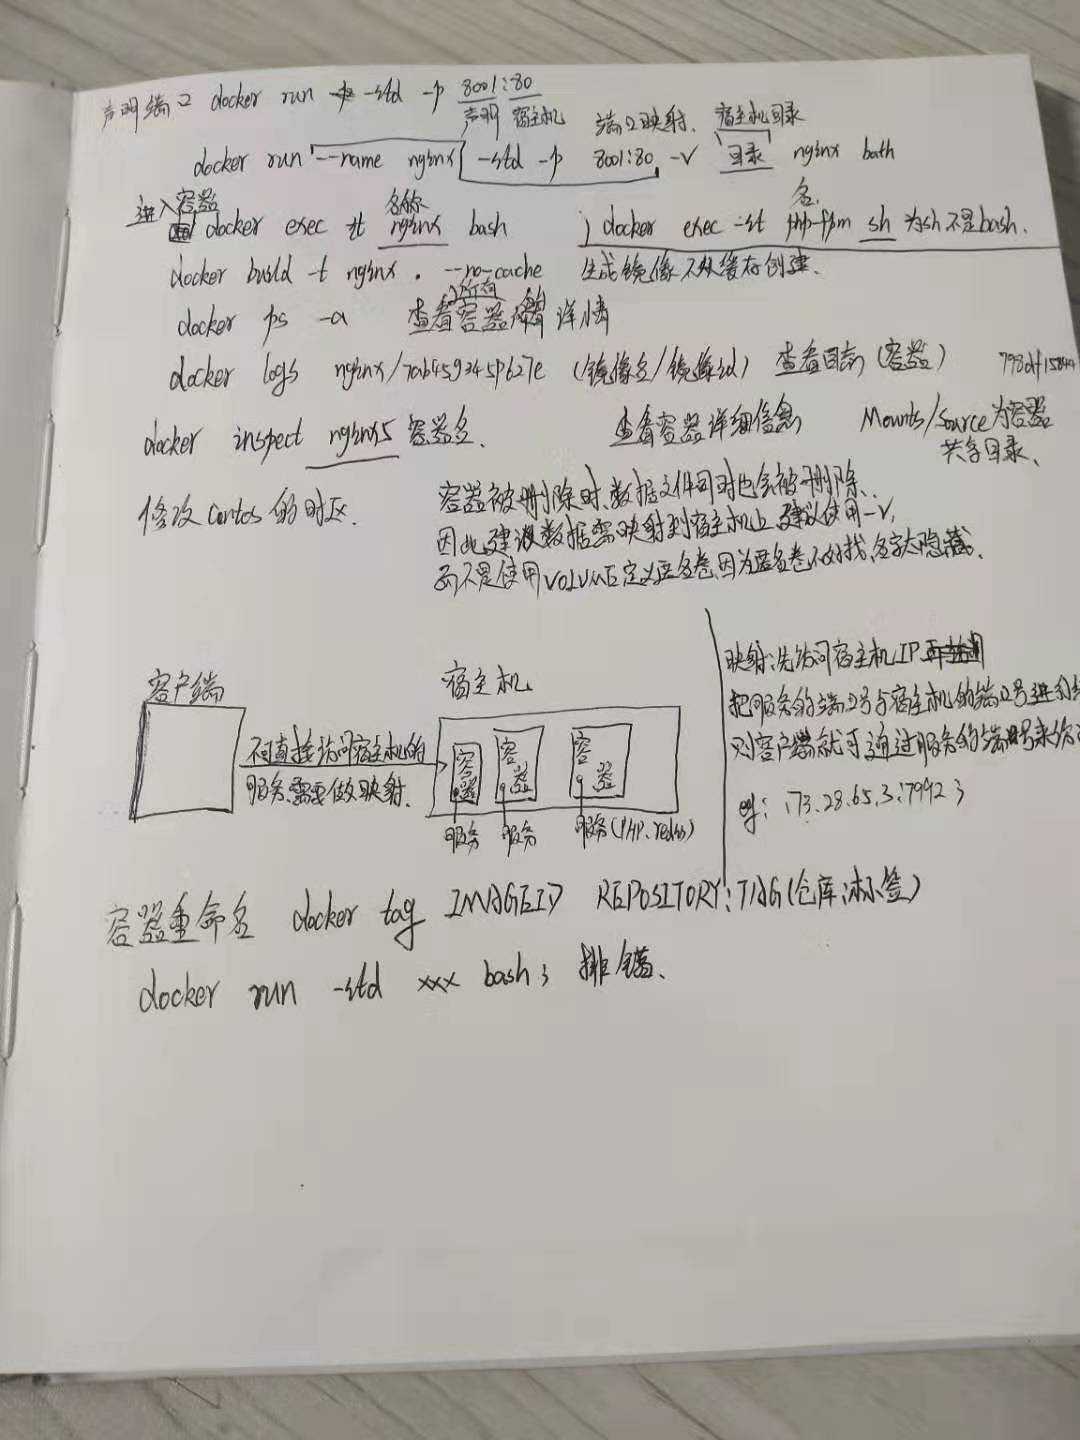 声明端口 docker run -itd -p 8001:80
声明 宿主机 端口映射. 宿主机目录
docker run --name nginx -itd -p 8001:80 -v 目录 nginx bath
进入容器 名称 名.
docker exec it nginx bash ; docker exec -it php-fpm sh 为sh不是bash.
docker build -t nginx . --no-cache 生成镜像不从缓存创建.
docker ps -a 查看所有容器 详情
docker logs nginx/ (镜像名/镜像id) 查看日志 (容器)
docker inspect nginx5 容器名. 查看容器详细信息 Mounts/Source为容器
共享目录、
修改Centos的时区. 容器被删除时、数据文件同时也会被删除、
因此,建议数据需映射到宿主机上 建议使用-v,
而不是使用VOLUME定义匿名卷,因为匿名卷不好找,名字太隐藏.
客户端
宿主机
不可直接访问宿主机的
服务,需要做映射.
容器
容器
容器
服务 服务 服务(PHP. redis)
映射:先访问宿主机IP
把服务的端口号与宿主机的端口号进行
则客户端就可通过服务的端口号来访
容器重命名 docker tag IMAGEID REPOSITORY:TAG(仓库:标签)
docker run -itd xxx bash; 排错、